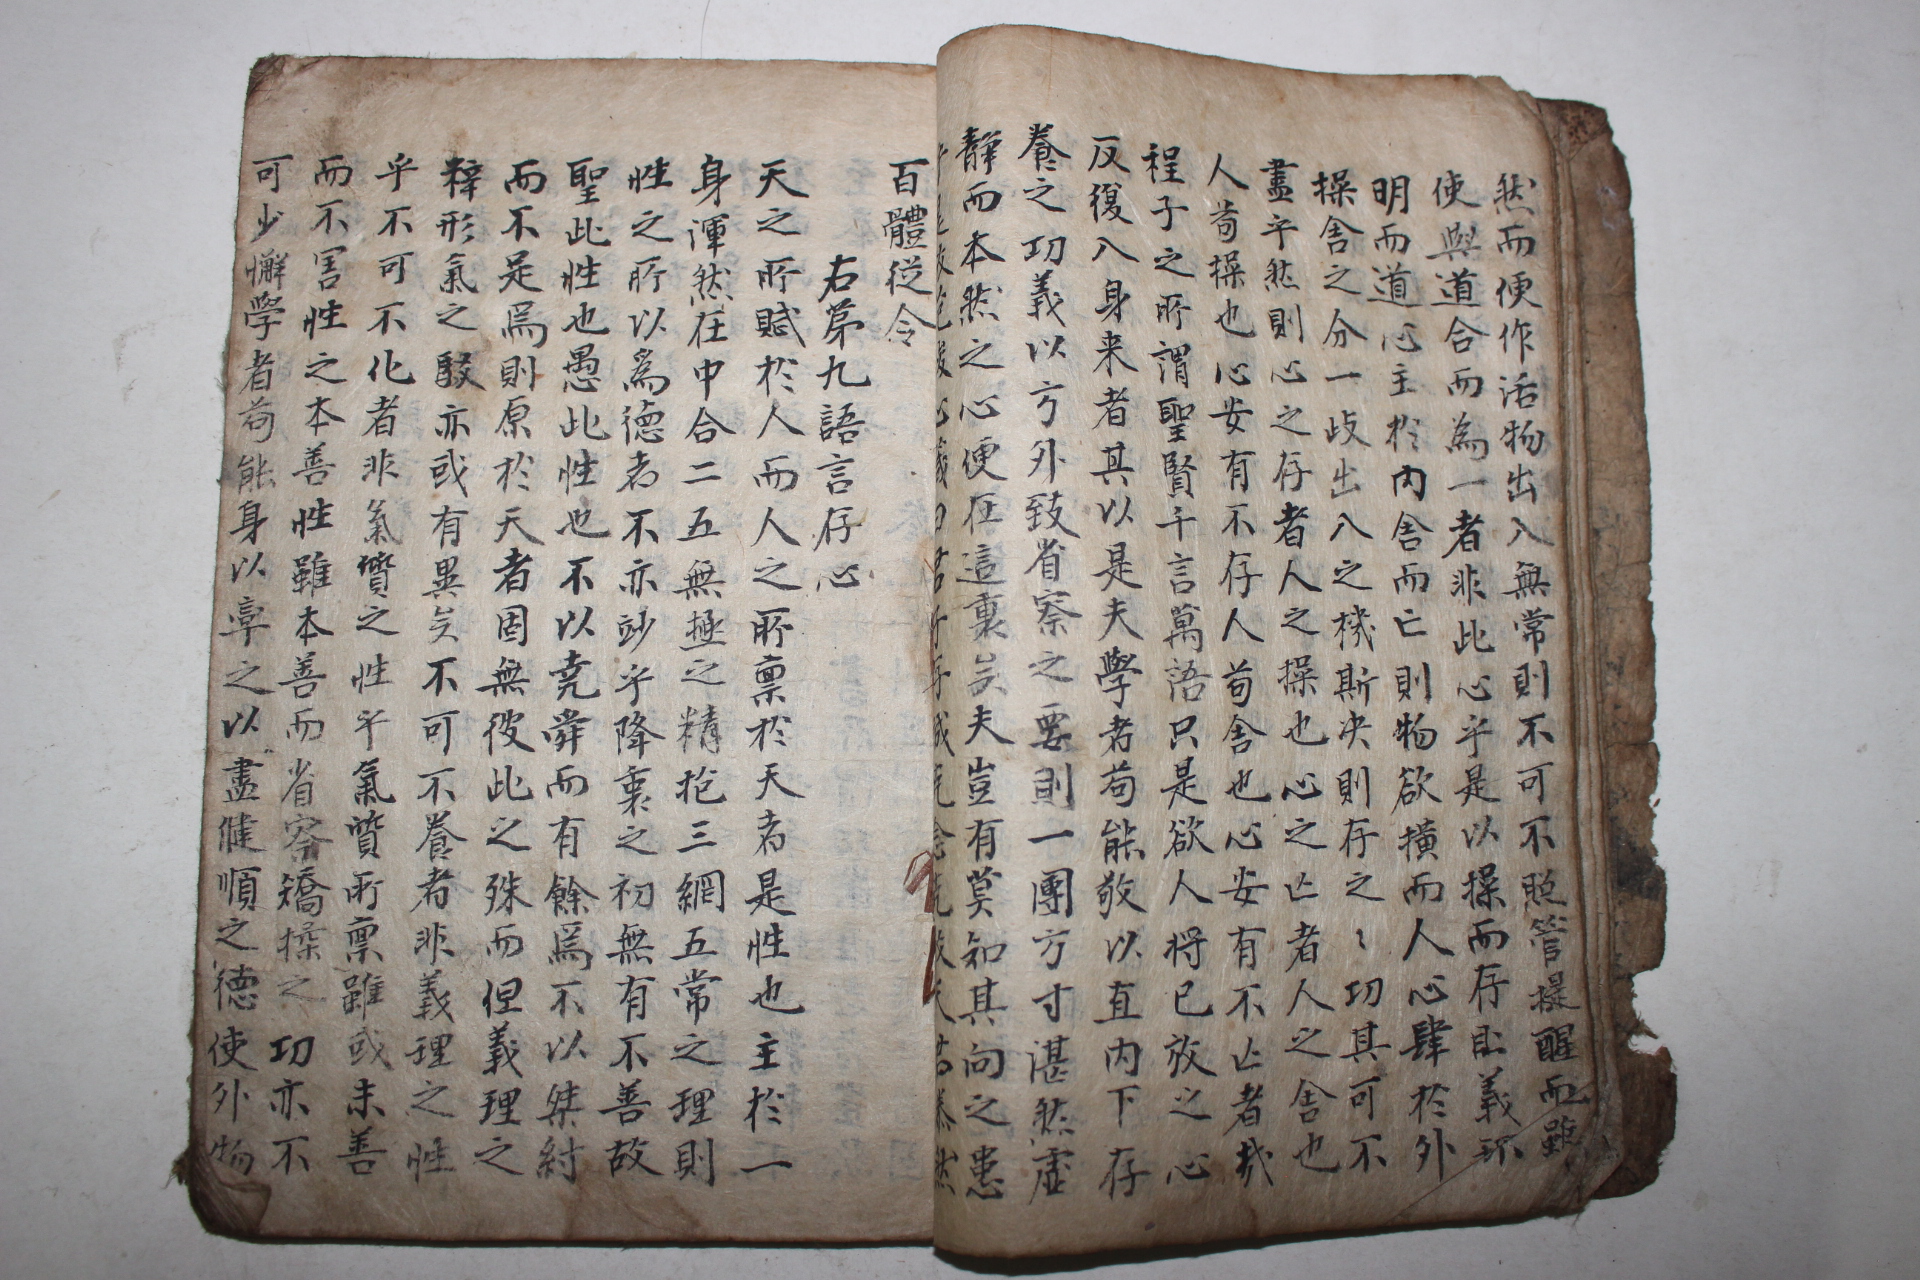 然而便作活物出入無常則不可不照管提醒而雖
使與道合而為一者非此心乎是以操而存則義
明而道心主於內舍而亡則物欲橫而人心肆於外
操舍之分一歧出入之機斯决則存之之功其可不
盡乎然則心之存者人之操也心之亡者人之舍也
人苟操也心安有不存人苟舍也心安有不亡者哉
程子之所謂聖賢千言萬語只是欲人將已放之心
反復入身来者其以是夫學者苟能敬以直內下存
養之功義以方外致省察之要則一團方寸湛然虛
靜而本然之心便在這裏矣夫豈有莫知其向之患
百體從令
右第九語言存心
天之所賦於人而人之所禀於天者是性也主於一
身渾然在中合二五無極之精抱三網五常之理則
性之所以為德者不亦妙乎降衷之初無有不善故
聖此性也愚此性也不以堯舜而有餘爲不以桀紂
而不足爲則原於天者固無彼此之殊而但義理之
粹形氣之駁亦或有異矣不可不養者非義理之性
乎不可不化者非氣質之性乎氣質所禀雖或未善
而不害性之本善性雖本善而省察矯揉之功亦不
可少懈學者苟能身以章之以盡健順之德使外物